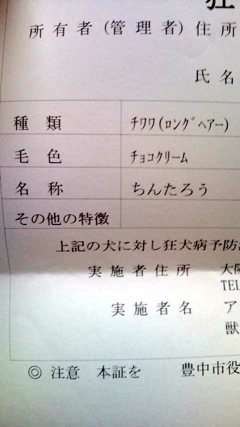 所有者(管理者)住所
氏名
種類 チワワ(ロングヘアー)
毛色 チョコクリーム
名称 ちんたろう
その他の特徴
上記の犬に対し狂犬病予防
実施者住所 大阪
TEL
実施者名 ア
獣
◎ 注意 本証を 豊中市役